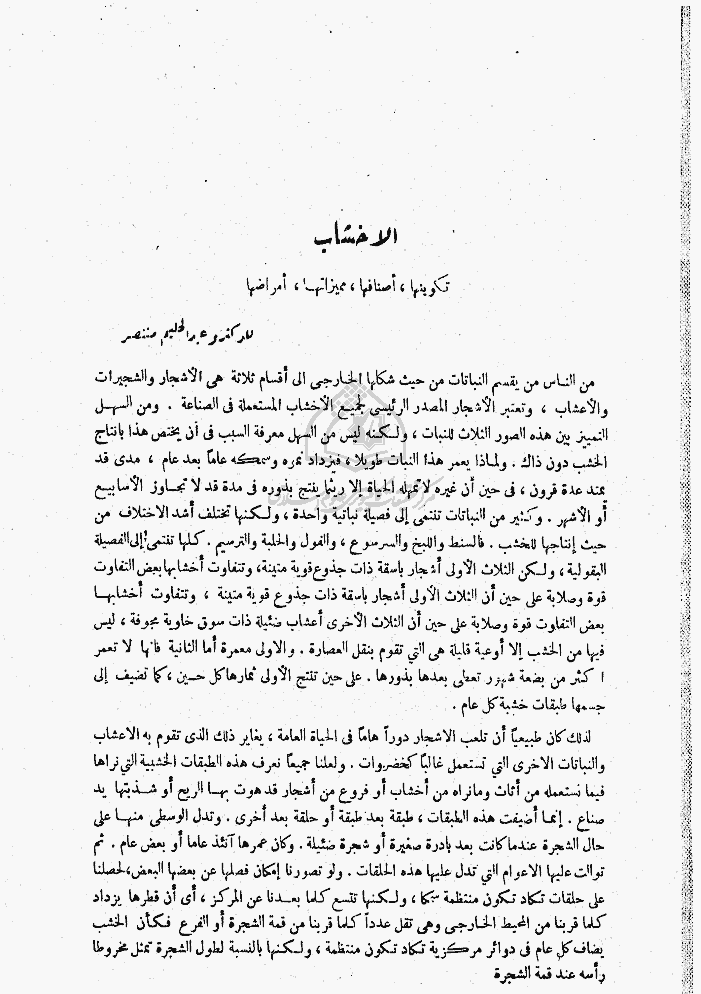 الاخشاب
تكوينها ، أصنافها ، مميزاتها ، أمراضها
للدكتور عبد الحليم منتصر
من الناس من يقسم النباتات من حيث شكلها الخارجى الى أقسام ثلاثة هى الأشجار والشجيرات
والأعشاب ، وتعتبر الأشجار المصدر الرئيسى لجميع الأخشاب المستعملة فى الصناعة . ومن السهل
التمييز بين هذه الصور الثلاث للنبات ، ولكنه ليس من السهل معرفة السبب فى أن يختص هذا بانتاج
الخشب دون ذاك . ولماذا يعمر هذا النبات طويلا ، فيزداد نموه وسمكه عاماً بعد عام ، مدى قد
يمتد عدة قرون ، فى حين أن غيره لا تمهله الحياة إلا ريثما ينتج بذوره فى مدة قد لا تتجاوز الأسابيع
أو الأشهر . وكثير من النباتات تنتمى إلى فصيلة نباتية واحدة ، ولكنها تختلف أشد الاختلاف من
حيث إنتاجها للخشب . فالسنط واللبخ والسرسوع ، والفول والحلبة والترمس . كلها تنتمى إلى الفصيلة
البقولية ، ولكن الثلاث الأولى أشجار باسقة ذات جذوع قوية متينة، وتتفاوت أخشابها بعض التفاوت
قوة وصلابة على حين أن الثلاث الأولى أشجار باسقة ذات جذوع قوية متينة ، وتتفاوت أخشابها
بعض التفاوت قوة وصلابة على حين أن الثلاث الأخرى أعشاب ضئيلة ذات سوق خاوية مجوفة ، ليس
فيها من الخشب إلا أوعية قليلة هى التي تقوم بنقل العصارة . والاولى معمرة أما الثانية فانها لا تعمر
اكثر من بضعة شهور تعطى بعدها بذورها . على حين تنتج الأولى ثمارها كل حين ، كما تضيف إلى
جسمها طبقات خشبية كل عام .
لذلك كان طبيعياً أن تلعب الاشجار دوراً هاما فى الحياة العامة ، يغاير ذلك الذى تقوم به الاعشاب
والنباتات الاخرى التي تستعمل غالباً كخضروات . ولعلنا جميعاً نعرف هذه الطبقات الخشبية التي نراها
فيما نستعمله من أثاث ومانراه من أخشاب أو فروع من أشجار قد هوت بها الريح أو شذبتها يد
صناع . إنما أضيفت هذه الطبقات ، طبقة بعد طبقة أو حلقة بعد أخرى . وتدل الوسطى منها على
حال الشجرة عندما كانت بعد بادرة صغيرة أو شجرة ضئيلة . وكان عمرها آنئذ عاما أو بعض عام . ثم
توالت عليها الاعوام التي تدل عليها هذه الحلقات . ولو تصورنا إمكان فصلها عن بعضها البعض، لحصلنا
على حلقات تكاد تكون منتظمة سمكا ، ولكنها تتسع كلما بعدنا عن المركز ، أى أن قطرها يزداد
كلما قربنا من المحيط الخارجى وهى تقل عدداً كلما قربنا من قمة الشجرة أو الفرع فكأن الخشب
يضاف كل عام فى دوائر مركزية تكاد تكون منتظمة ، ولكنها بالنسبة لطول الشجرة تمثل مخروطا
رأسه عند قمة الشجرة